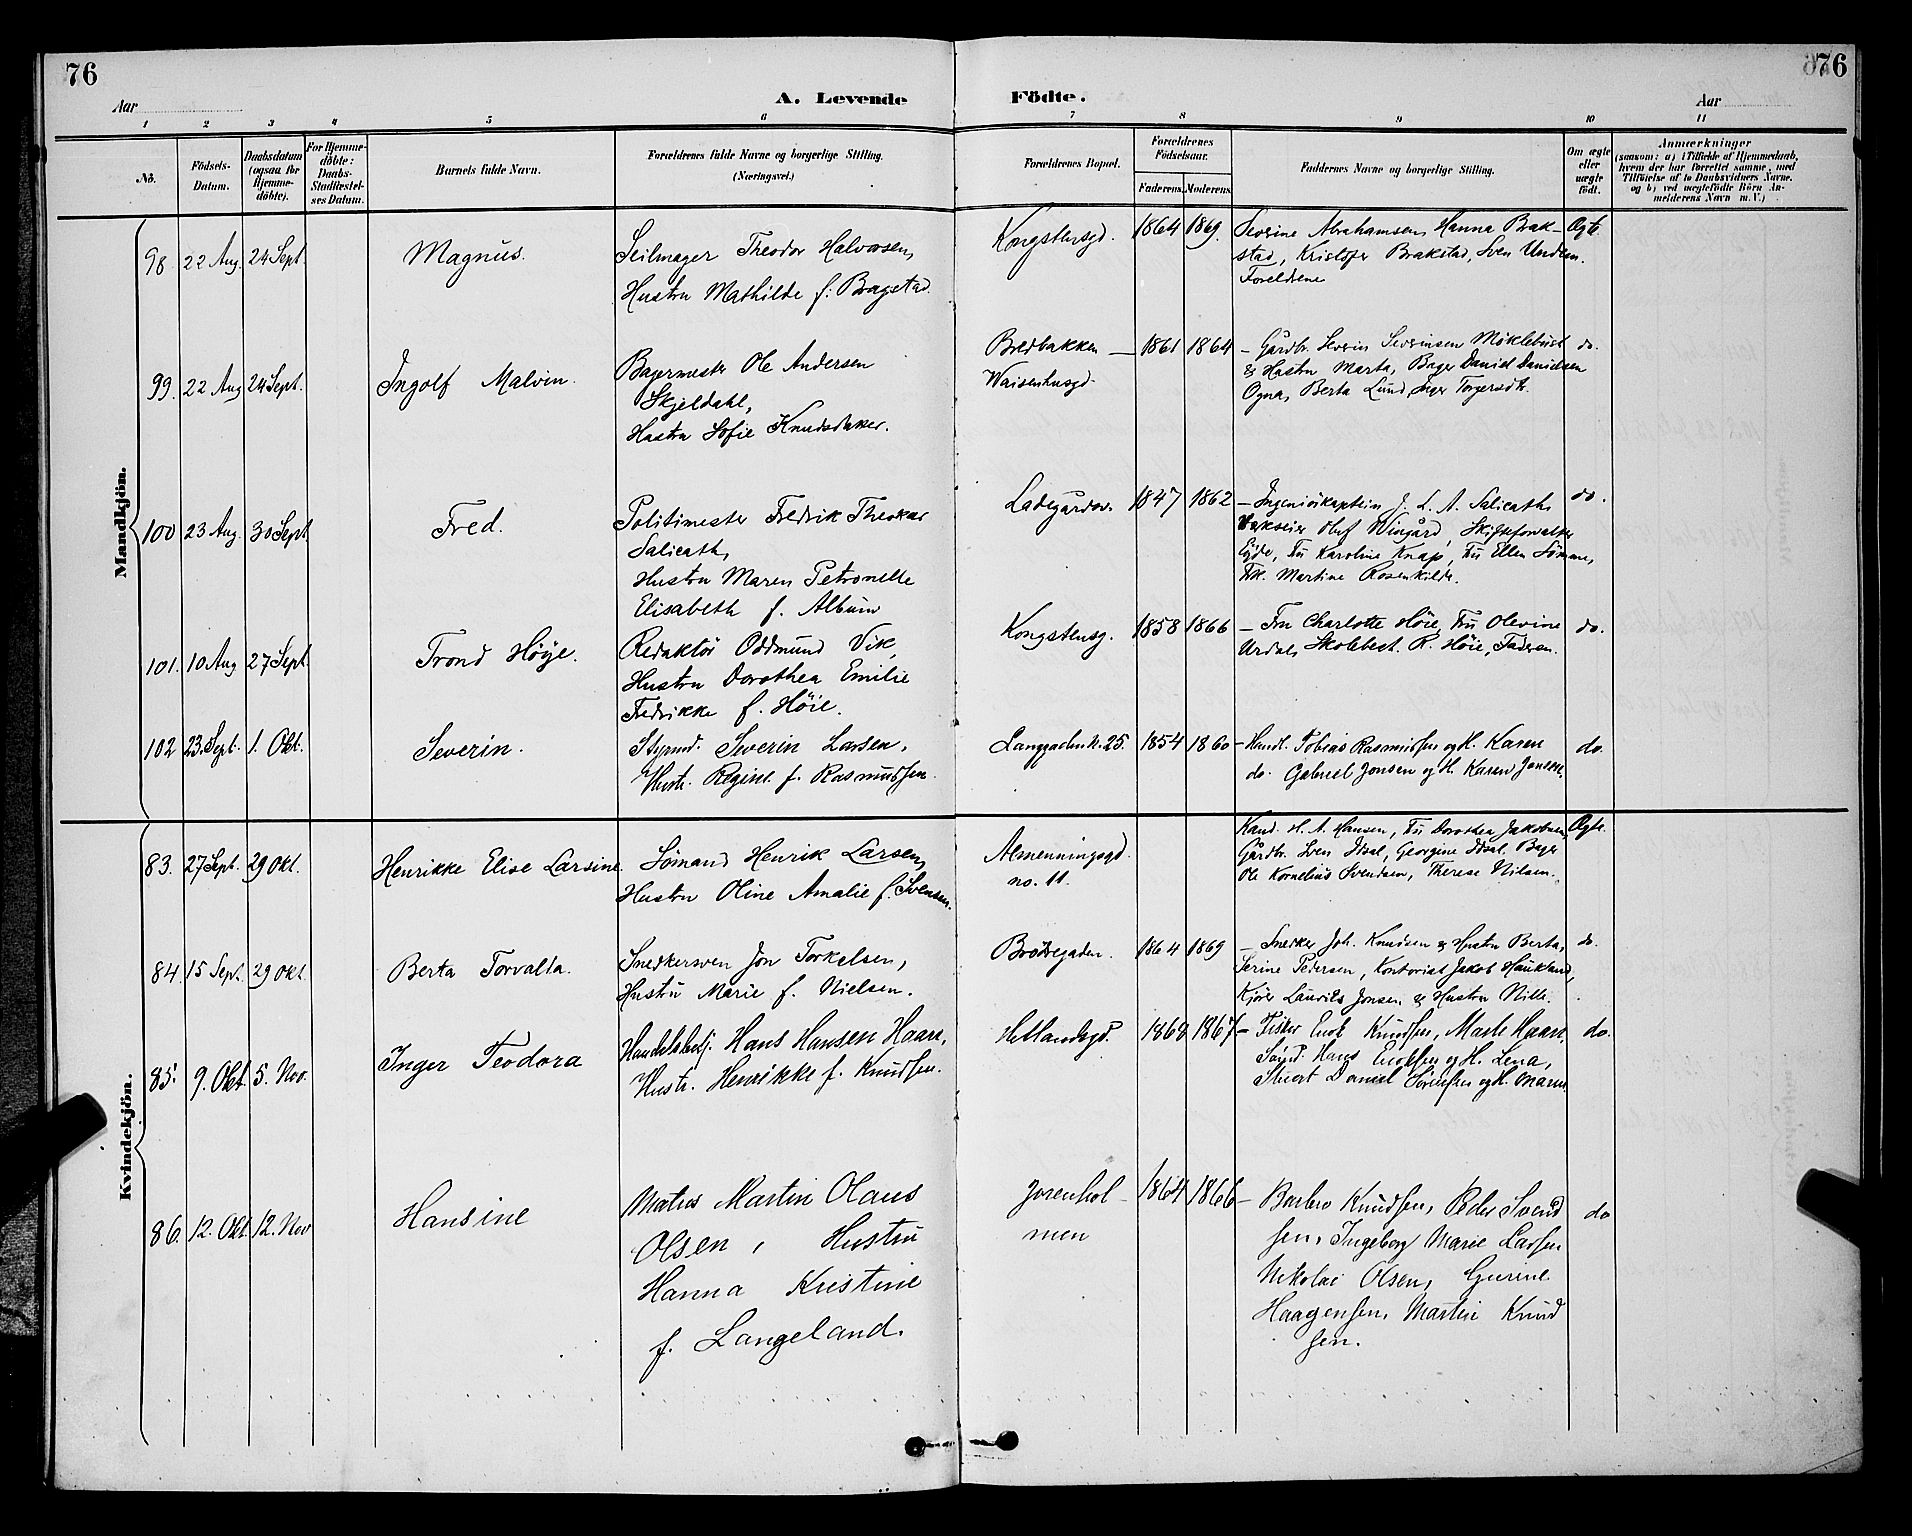 76
76
Aar
A. Levende
Födte.
Aar
1
2
3
4
5
6
7
8
9
10
11
No.
Födsels-
Datum.
Daabsdatum
(ogsaa for
Hjemme-
döbte).
For Hjemme-
döbte:
Daabs-
Stadfæstel-
ses Datum.
Barnets fulde Navn.
Forældrenes fulde Navne og borgerlige Stilling.
(Næringsvei.)
Forældrenes Bopæl.
Forældrenes
Födselsaar.
Faderens.
Moderens.
Faddernes Navne og borgerlige Stilling.
Om ægte
eller
uægte
födt.
Anmærkninger
(saasom: a) i Tilfælde af Hjemmedaab,
hvem der har forrettet samme, med
Tilföielse af to Daabsvidners Navne.
og b) ved uægtefödte Börn An-
melderens Navn m. V.)
Mandkjön.
98. 22 Aug. 24 Sept. Magnus.
Seilmager Theodor Halvorsen,
Hustru Mathilde f: Bragstad.
Kongstensgd. 1864 1869.
Severine Abrahamsen, Hanna Bak-
stad, Kristofer Brakstad, Sven Undem.
Foreldrene
Ægte
99. 22 Aug 24 Sept. Ingolf Malvin.
Bagermester Ole Andersen
Skjeldahl,
Hustru Sofie Knudsdaker.
Bredbakken —
Waisenhusgd.
1861 1864
— Gårdbr. Severin Severinsen Möklebust
& Hustru Marta, Bager Daniel Danielsen
Ogna, Berta Lund, Inger Torgersdtr.
do.
100 23 Aug. 30 Sept. Fred.
Politimester Fredrik Theokar
Salicath,
Hustru Maren Petronelle
Elisabeth f. Album
Ladegårdsv. 1847 1862
— Ingeniörkaptein J. L. A. Salicath,
Oluf Wingård, Skifteforvalter
Eyde, Fru Karoline Knap, Fru Ellen Sömme,
Frk. Martine Rosenkilde.
do.
101. 10 Aug 27 Sept. Trond Höye.
Redaktör Oddmund Vik,
Hustru Dorothea Emilie
Fredrikke f. Höie.
Kongstensg. 1858 1866
— Fru Charlotte Höie, Fru Olevine
Urdal, Skolebest. R. Höie, Faderen.
do.
102 23. Sept. 1. Okt. Severin.
Styrmd. Severin Larsen,
Hustr. Regine f. Rasmussen.
Langgaden N. 25. 1854 1860
— Handl. Tobias Rasmussen og H. Karen
do. Gabriel Jonsen og H. Karen
do.
Kvindekjön.
83. 27 Sept. 29 Okt. Henrikke Elise Larsine
Sömand Henrik Larsen,
Hustru Oline Amalie f. Svensen.
Almenningsgd.
no. 11.
Kand. H. A. Hansen, Fru Dorothea Jakobsen
Gårdbr. Sven Idsal, Georgine Idsal. Bager
Ole Kornelius Svendsen, Therese Nilsen.
Ægte.
84. 15 Sept. 29 Okt. Berta Torvalta.
Snedkersven Jon Torkelsen,
Hustru Marie f. Nielsen.
Brödregaden. 1864 1869
— Snerker Joh. Knudsen & Hustru Berta,
Serine Pedersen, Kontorist Jakob Haukland,
Kjörer Laurits Jonsen & Hustru Nille.
do.
85. 9. Okt. 5. Nov. Inger Teodora
Handelsbetj. Hans Hansen Haare,
Hustr. Henrikke f. Knudsen.
Hetlandsgd. 1868 1867
— Fisker Enok Knudsen, Marte Haare
Sömd. Hans Enoksen og H. Lena,
Stuert Daniel Sörensen og H. Maren
do.
86. 12. Okt. 12. Nov Hansine
Matros Martin Olaus
Olsen, Hustru
Hanna Kristine
f. Langeland.
Jorenhol-
men
1864 1866
— Barbro Knudsen, Peder Svend
sen, Ingeborg Marie Larsen
Nikolai Olsen, Gurine
Haagensen, Martin Knud
sen.
do